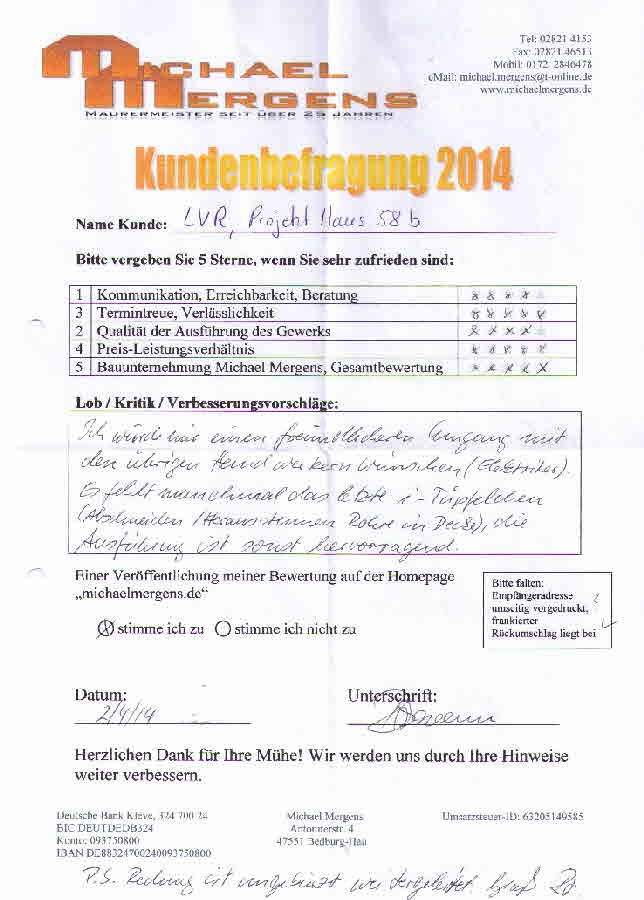 MICHAEL
MERGENS
MAURERMEISTER SEIT ÜBER 25 JAHREN
Tel: 02821 4153
Fax: 02821 46513
Mobil: 0172 2846478
eMail: michael.mergens@t-online.de
www.michaelmergens.de
Kundenbefragung 2014
Name Kunde: LVR, Projekt Haus 58 b
Bitte vergeben Sie 5 Sterne, wenn Sie sehr zufrieden sind:
1 Kommunikation, Erreichbarkeit, Beratung
3 Termintreue, Verlässlichkeit
2 Qualität der Ausführung des Gewerks
4 Preis-Leistungsverhältnis
5 Bauunternehmung Michael Mergens, Gesamtbewertung
Lob / Kritik / Verbesserungsvorschläge:
Ich würde mir einen freundlicheren Umgang mit
den übrigen Handwerkern wünschen (Elektriker).
Es fehlt manchmal das letzte i-Tüpfelchen
(Abschneiden / Herausstemmen Rohre in Decke), die
Ausführung ist sonst hervorragend.
Einer Veröffentlichung meiner Bewertung auf der Homepage
„michaelmergens.de“
stimme ich zu stimme ich nicht zu
Bitte falten:
Empfängeradresse
umseitig vorgedruckt,
frankierter
Rückumschlag liegt bei
Datum: Unterschrift:
2/4/14
Herzlichen Dank für Ihre Mühe! Wir werden uns durch Ihre Hinweise
weiter verbessern.
Deutsche Bank Kleve, 324 700 24
BIC DEUTDEDB324
Konto: 093750800
IBAN DE88324700240093750800
Michael Mergens
Antoniterstr. 4
47551 Bedburg-Hau
Umsatzsteuer-ID: 63205149585
P.S. Rechnung ist ungekürzt weitergeleitet. Gruß